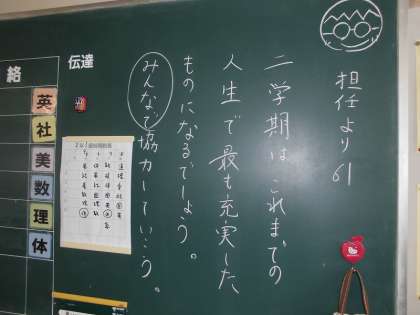 担任より 61
二学期は、これまでの
人生で最も充実した
ものになるでしょう。
みんなで協力していこう。
伝達
絡
英
社
美
数
理
体